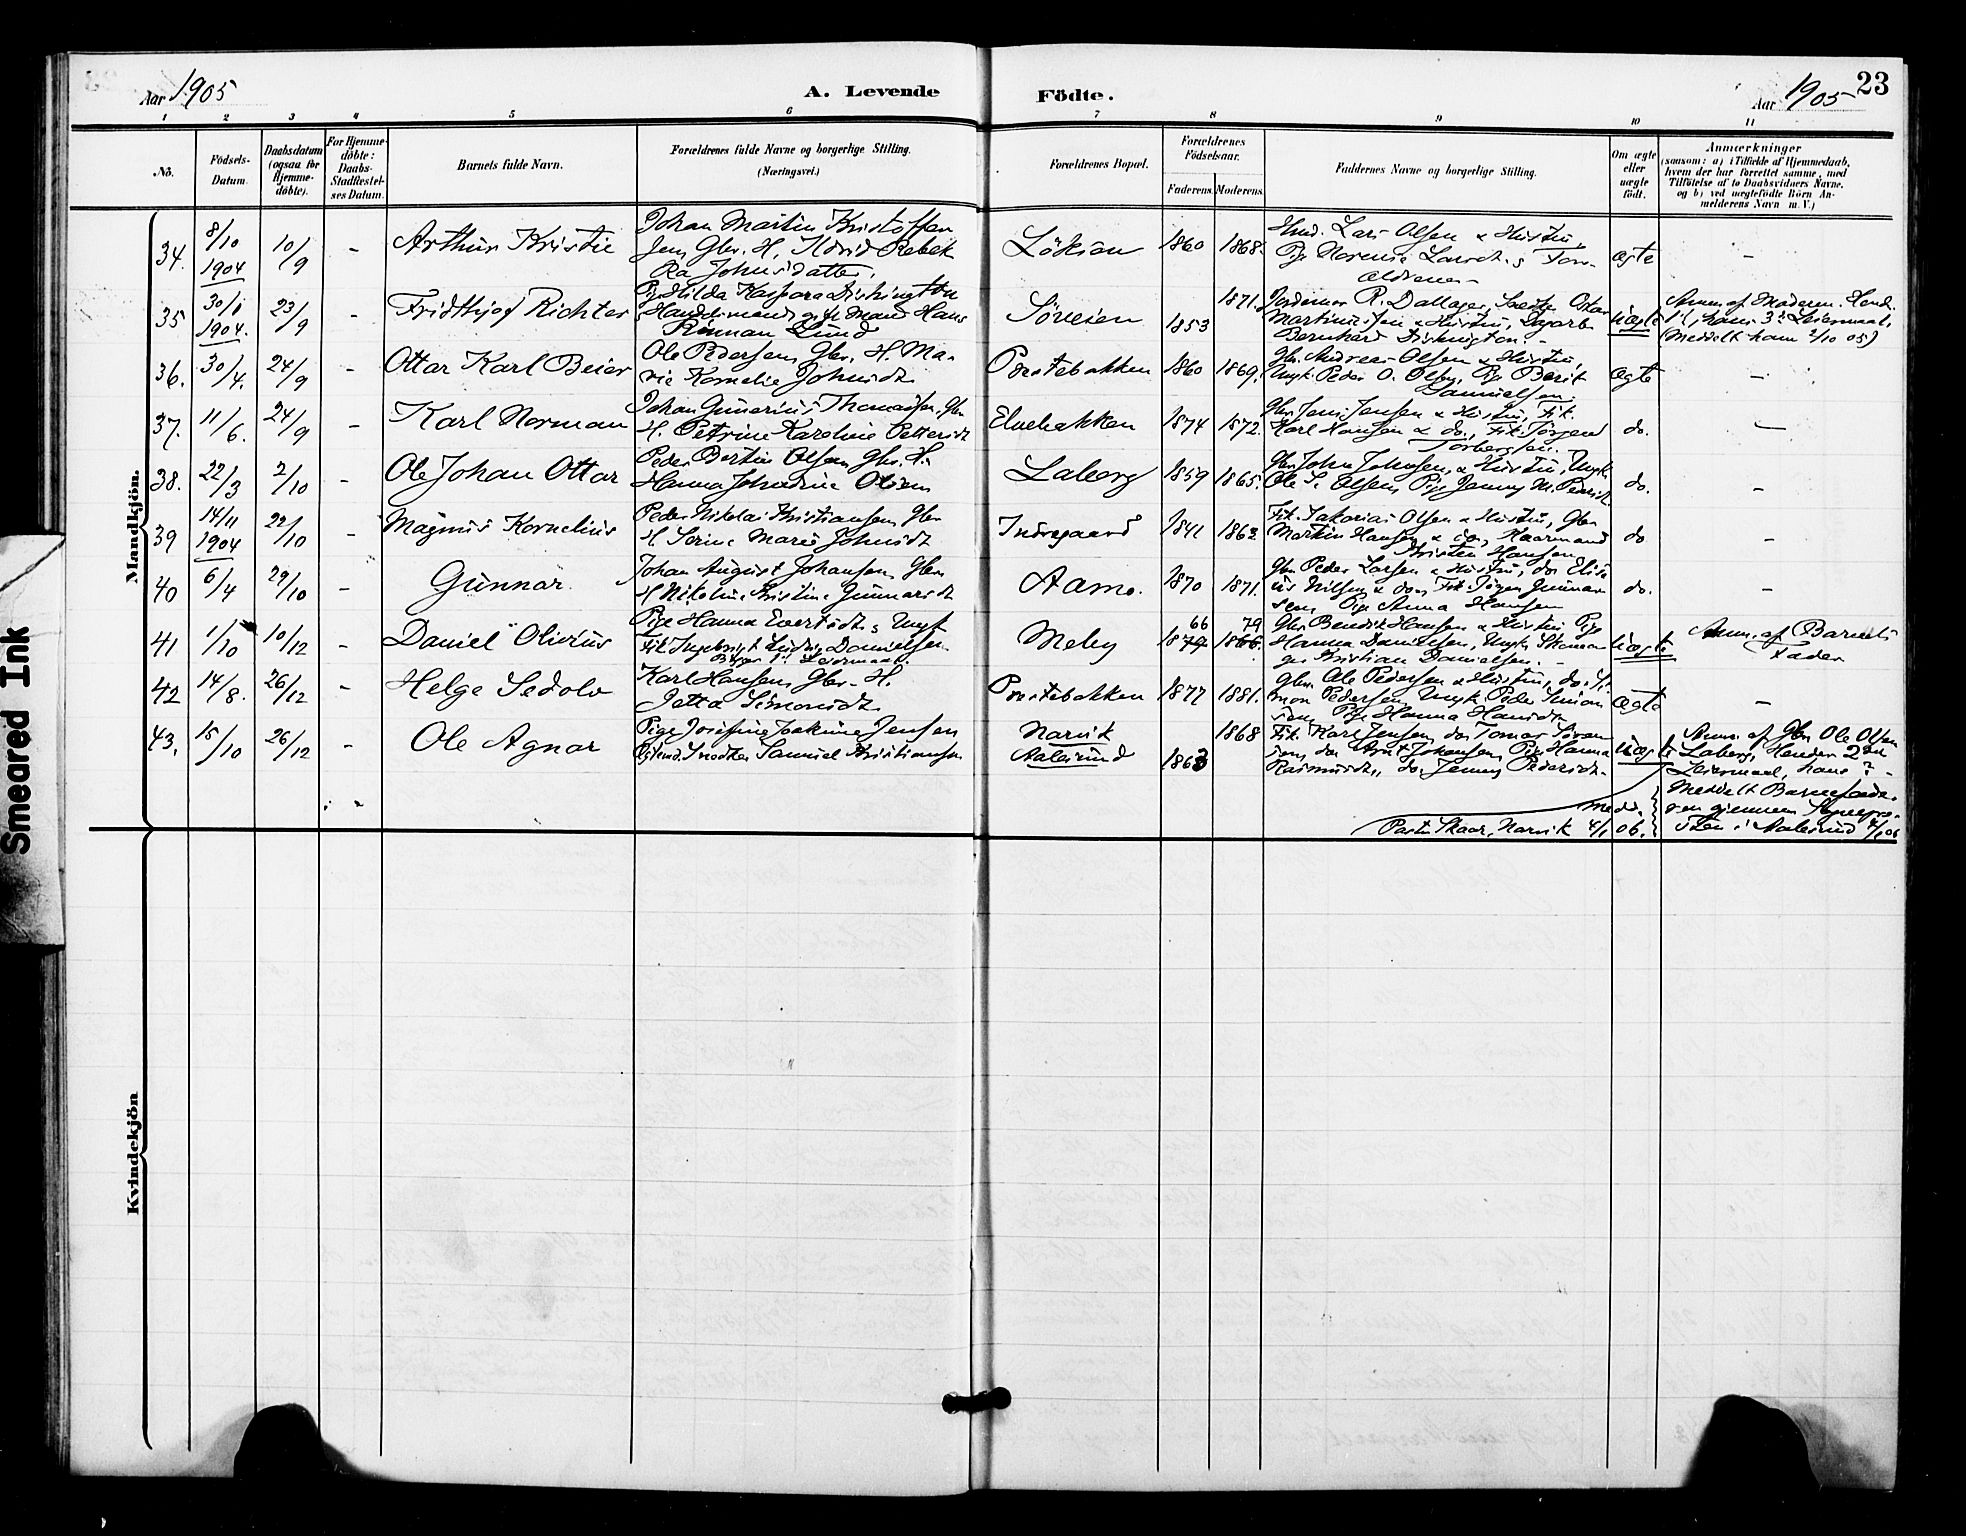 Aar 1905
A. Levende Födte.
Aar 1905
23
1 2 3 4 5 6 7 8 9 10 11
No.
Födsels-Datum.
Daabsdatum (ogsaa for Hjemme-döbte).
For Hjemme-döbte: Daabs-Stadfæstel-ses Datum.
Barnets fulde Navn.
Forældrenes fulde Navne og borgerlige Stilling. (Næringsvei.)
Forældrenes Bopæl.
Forældrenes Födselsaar.
Faderens. Moderens.
Faddernes Navne og borgerlige Stilling.
Om ægte eller uægte födt.
Anmærkninger
(saasom: a) i Tilfælde af Hjemmedaab, hvem der har forrettet samme, med Tilföielse af to Daabsvidners Navne, og b) ved uægtefödte Börn An-melderens Navn m. V.)
Mandkjön.
34. 8/10 1904 10/9 - Arthur Kristie
Johan Martin Kristoffer
Jens Gbr. H. Rebek
Ra Johnsdatter.
1860 1868.
Lars Olsen & Hustru,
ægte -
35 1904. 23/9 - Fridthjof Richter
Hilda Kaspara Dishington
Handelsmand, gift Mand Hans
Lund
Søveien 1853 1871.
Jordemor R. Dallager,
Martinus & Hustru, Dagart
Bernhard Dishington. -
uægte
Anm. af Moderen. Hend.
1ste, hans 3die Leiermaal.
(Meddelt ham 2/10 05)
36. 30/4. 24/9 - Ottar Karl Beier
Ole Pedersen, Gbr. H. Ma-
rie Kornelie Johnsdt.
Prestebakken 1860 1869.
Gbr. Andreas Olsen & Hustru,
Ungk. Peder O. Olsen, Pige Berit
Samuelsen.
ægte -
37. 11/6. 24/9 - Karl Norman
Johan Gunerius Thomassen, Gbr.
H. Petrine Karoline Pettersdt.
Elvebakken 1874 1872.
Gbr. Jens Jensen & Hustru, Fik.
Karl Hansen & do., Fik. Jørgen
Torbergsen.
do. -
38. 22/3 2/10 - Ole Johan Ottar
Peder Bertin Olsen, Gbr. H.
Hanna
Laberg 1859 1865.
Gbr. John Johnsen, & Hustru, Ungk
Ole S. Olsen, Pige Jenny M. Pedersdt.
do. -
39 14/11 1904 22/10 - Magnus Kornelius
Peder Nikolai Kristiansen, Gbr.
H. Serine Marie Johnsdt.
Indregaard 1841 1862
Fik. Sakarias Olsen & Hustru, Gbr.
Martin Hansen & do., Kaarmand
Kristen Hansen
do -
40 6/4 29/10 - Gunnar.
Johan August Johansen, Gbr.
H. Nikoline Kristine Gunnarsdt.
Aamo. 1870 1871.
Gbr. Peder Larsen & Hustru, do. Elise
us Nilsen & do., Fik. Jørgen Gunnar
sen, Pige Anna Hansen
do. -
41 1/10 10/12 - Daniel Olivius
Pige Hanna Evertsdt. & Ungk
Fik. Ingebrigt Ludvig Danielsen.
Begges 1st. Leiermaal.
Meby 66 1879 79 1866.
Gbr. Bendik Hansen & Hustru Pige
Hanna Danielsen, Ungk.
Kristian Danielsen. -
uægte
Anm. af Barnets
Fader
42 14/8. 26/12 - Helge Sedolv
Karl Hansen, Gbr. H.
Jetta Simonsdt.
Prestebakken 1877 1881.
Gbr. Ole Pedersen & Hustru, do. Si-
mon Pedersen, Ungk. Peder Simon
sen, Pige Hanna Hansdt.
ægte -
43. 15/10 26/12 - Ole Agnar
Pige Josefine Joakime Jensen
Snedker Samuel Kristiansen
Narvik
Aalesund 1863 1868
Fik. Karl Jensen, do. Tomas Søren
sen, do. Arnt Johansen, Pige Hanna
Rasmusdt., do. Jenny Pedersdt.
uægte
Anm. af Gbr. Ole Olsen
Laberg, Hendes 2den
Leiermaal, hans ?
Meddelt Barnefade-
ren gjennem Sogneprе-
sten i Aalesund 4/1 06
medd.
Pastor Skaar, Narvik 4/1 06.
Kvindekjön
Smeared Ink